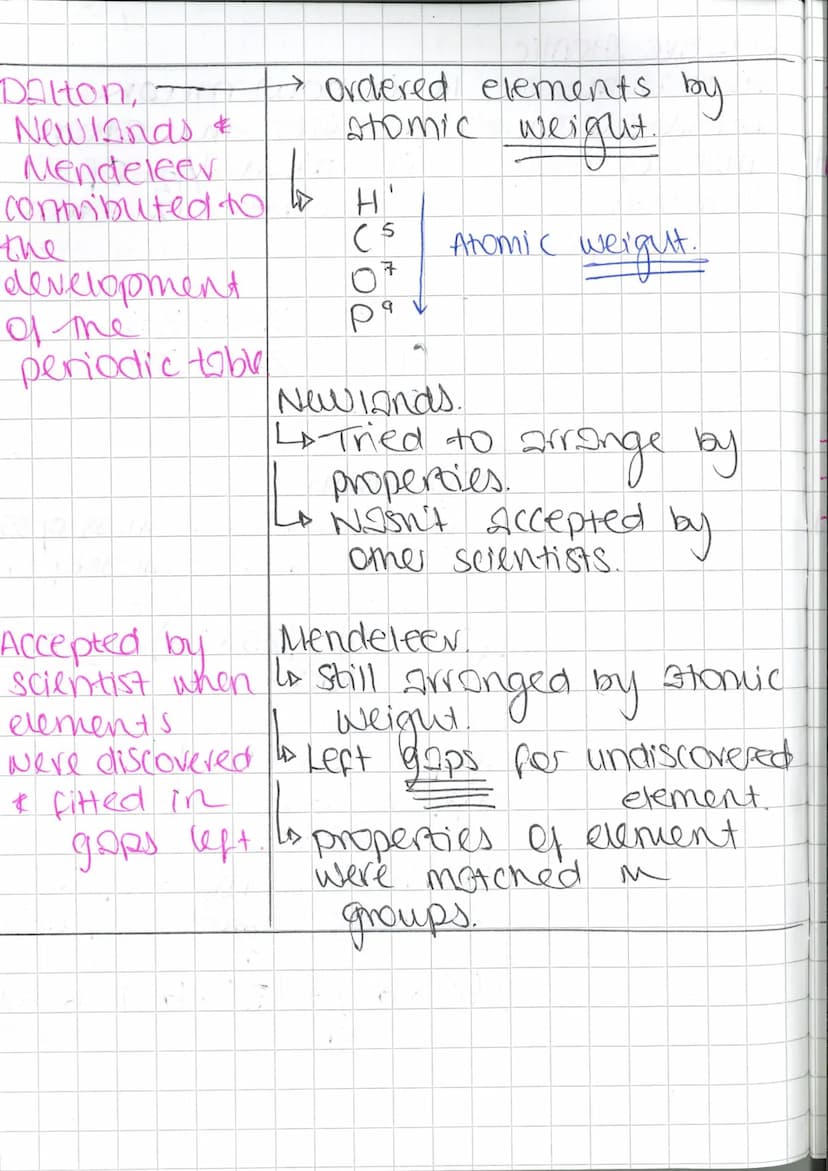 Dalton,
Newlands &
Mendeleev
contributed to
the
development
of the
periodic table
→ ordered elements by
atomic weight.
H¹
C⁵
O⁷
P⁹
Atomic weight.
Newlands.
↳ Tried to arrange by
properties.
↳ Wasn't accepted by
other scientists.
Accepted by
scientist when
elements
were discovered
& fitted in
gaps left.
Mendeleev.
↳ Still arranged by atomic
weight.
↳ Left gaps for undiscovered
element.
↳ properties of element
were matched in
groups.